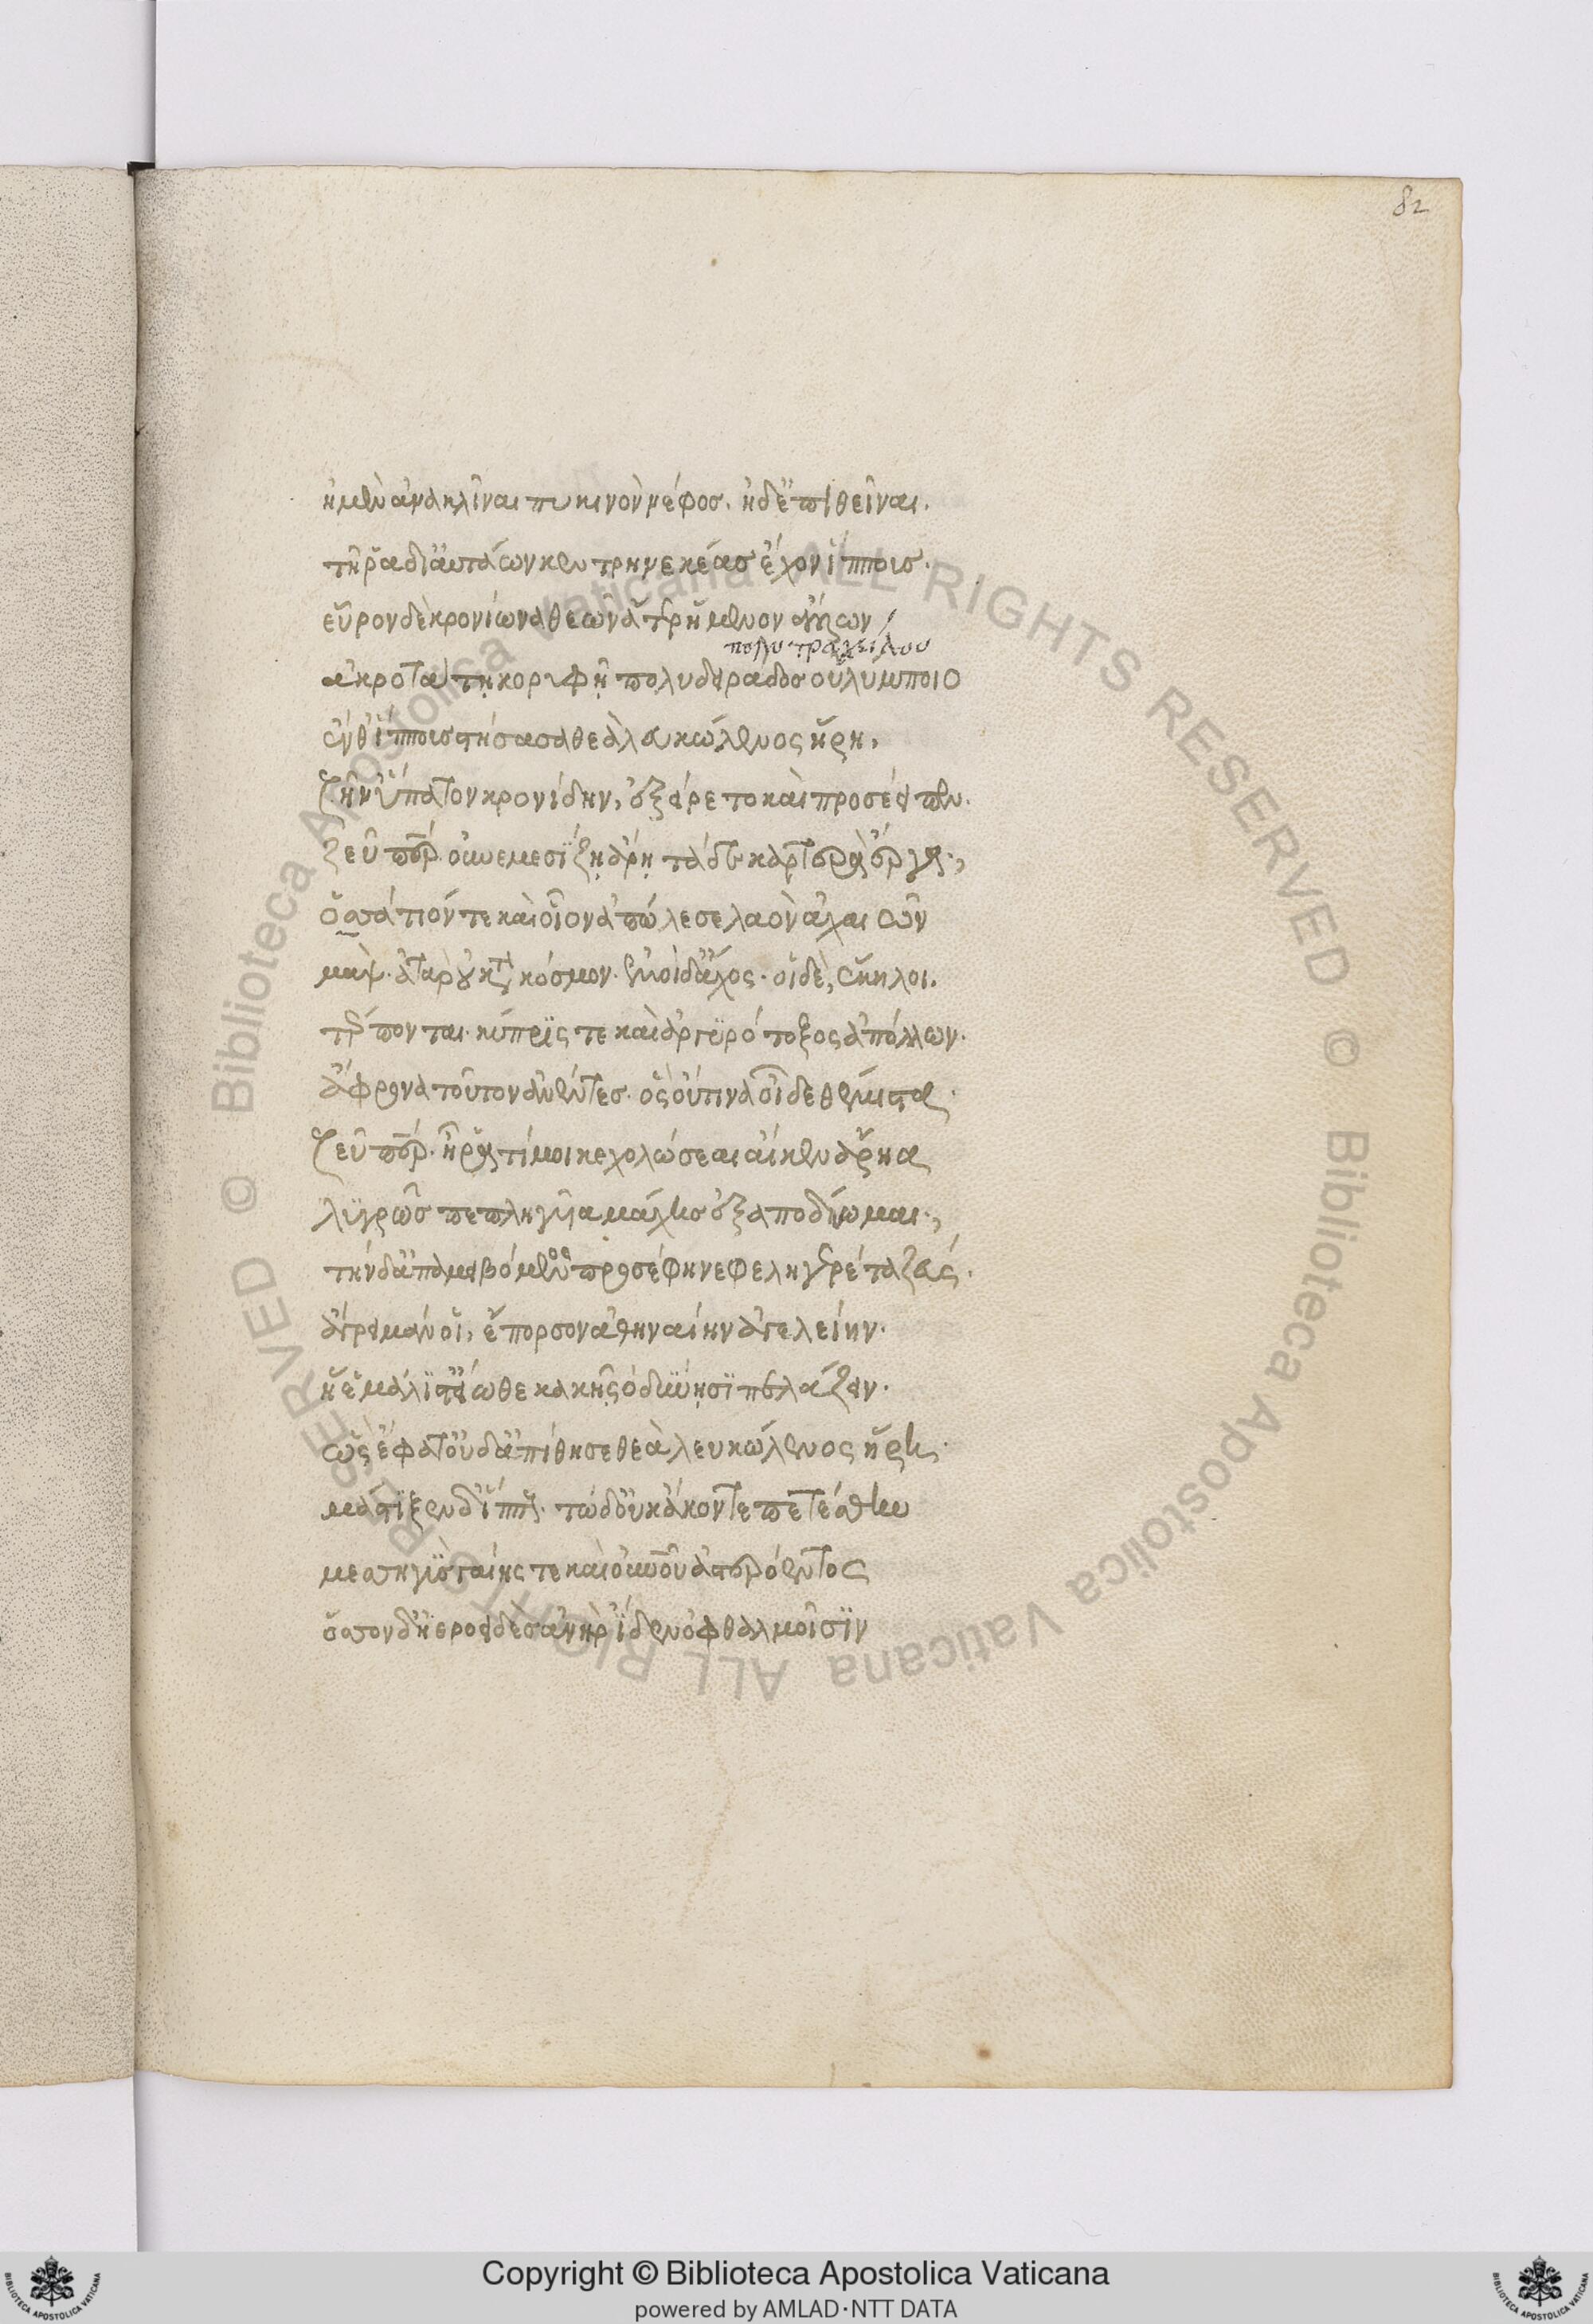 82
ἠμὲν ἀνακλῖναι πυκινὸν νέφος. ἠδ' ἐπιθεῖναι.
τῇ ῥα δι' αὐτάων κεντρηνεκέας ἔχον ἵππους.
εὗρον δὲ κρονίωνα θεῶν ἄτερ ἥμενον ἄλλων
πολυτραχείλου
ἀκροτάτῃ κορυφῇ πολυδειράδος οὐλύμποιο
ἔνθ' ἵππους στήσασα θεὰ λευκώλενος ἥρη,
ζῆν' ὕπατον κρονίδην, ἐξείρετο καὶ προσέειπεν.
ζεῦ πάτερ οὐ νεμεσίζῃ ἄρῃ τάδε καρτερὰ ἔργα,
ὁσσάτιόν τε καὶ οἷον ἀπώλεσε λαὸν ἀχαιῶν
μάψ. ἀτὰρ οὐ κατὰ κόσμον. ἐμοὶ δ' ἄχος. οἱ δὲ, ἕκηλοι.
τέρπονται κύπρϊς τε καὶ ἀργϋρότοξος ἀπόλλων.
ἄφρονα τοῦτον ἀνέντες. ὃς οὔ τινα οἶδε θέμιστα.
ζεῦ πάτερ. ἦ ῥά τί μοι κεχολώσεαι αἴ κεν ἄρηα
λϋγρῶς πεπληγυῖα μάχης ἐξαποδίωμαι,
τὴν δ' ἀπαμειβόμενος προσέφη νεφεληγερέτα ζεύς.
ἄγρει μάν οἱ, ἔπορσον ἀθηναίην ἀγελείην.
ἥ ἑ μάλϊστ' εἴωθε κακῇς ὀδύνῃσϊ πελάζειν.
ὣς ἔφατ' οὐδ' ἀπίθησε θεὰ λευκώλενος ἥρη.
μάστϊξεν δ' ἵππους. τὼ δ' οὐκ ἄκοντε πετέσθην
μεσσηγὺς γαίης τε καὶ οὐρανοῦ ἀστερόεντος
ὅσσον δ' ἠεροειδὲς ἀνὴρ ἴδεν ὀφθαλμοῖσϊν
© Biblioteca Apostolica Vaticana ALL RIGHTS RESERVED © Biblioteca Apostolica Vaticana ALL RIGHTS RESERVED
Copyright © Biblioteca Apostolica Vaticana
powered by AMLAD·NTT DATA
BIBLIOTECA APOSTOLICA VATICANA
BIBLIOTECA APOSTOLICA VATICANA